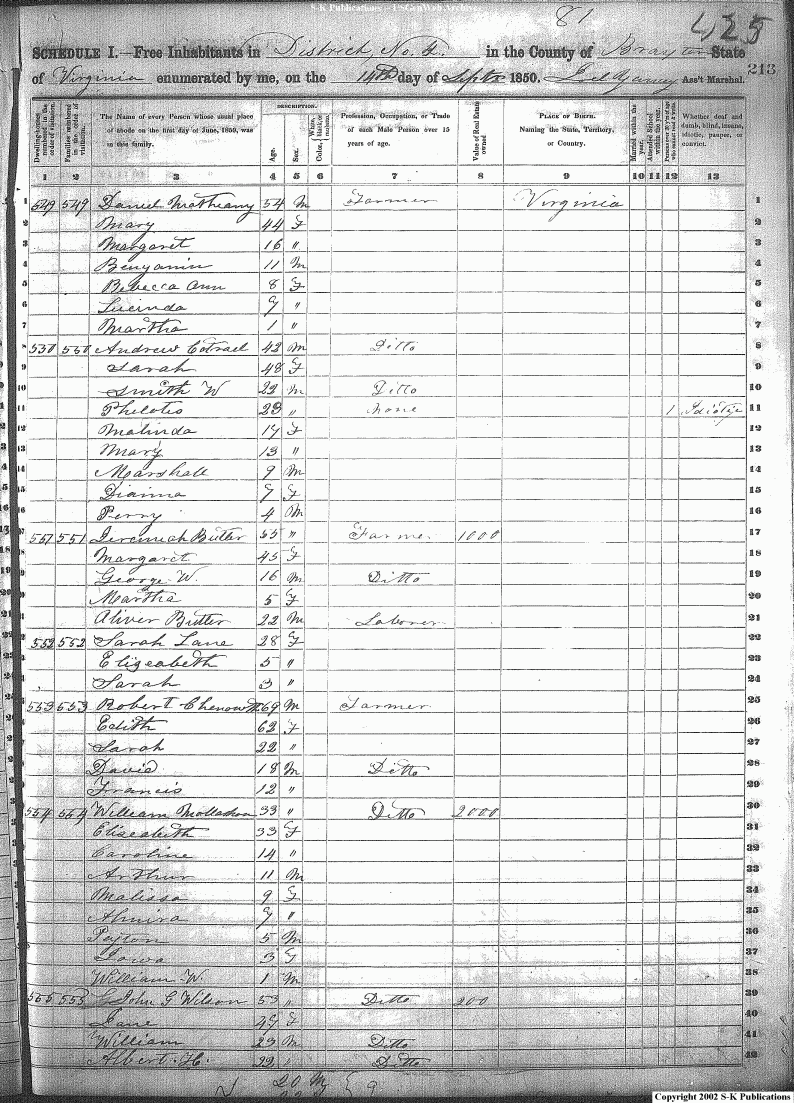 S-K Publications
81
425
SCHEDULE I.—Free Inhabitants in District No. 4. in the County of Braxton State
213
of Virginia enumerated by me, on the 14th day of Septr 1850. Ass't Marshal.
DESCRIPTION.
Dwelling-houses numbered in the order of visitation.
Families numbered in the order of visitation.
The Name of every Person whose usual place of abode on the first day of June, 1850, was in this family.
Age.
Sex.
Color, White, black, or mulatto.
Profession, Occupation, or Trade of each Male Person over 15 years of age.
Value of Real Estate owned.
PLACE OF BIRTH. Naming the State, Territory, or Country.
Married within the year.
Attended School within the year.
Persons over 20 y'rs of age who cannot read & write.
Whether deaf and dumb, blind, insane, idiotic, pauper, or convict.
1 2 3 4 5 6 7 8 9 10 11 12 13
1 549 549 Daniel Matheany 54 M Farmer Virginia 1
2 Mary 44 F 2
3 Margaret 16 " 3
4 Benyamin 11 M 4
5 Rebecca Ann 8 F 5
6 Lucinda 7 " 6
7 Martha 1 " 7
8 550 550 Andrew Cotrael 42 M Ditto 8
9 Sarah 48 F 9
10 Smith W 22 M Ditto 10
11 Philotis 23 " None 1 11
12 Malinda 17 F 12
13 Mary 13 " 13
14 Marshall 9 M 14
15 Dianna 7 F 15
16 Perry 4 M 16
17 551 551 Jeremiah Butler 55 " Farmer 1000 17
18 Margaret 45 F 18
19 George W. 16 M Ditto 19
20 Martha 5 F 20
21 Aliver Butler 22 M Laborer 21
22 552 552 Sarah Lane 28 F 22
23 Eligeabeth 5 " 23
24 Sarah 3 " 24
25 553 553 Robert Chenowth 69 M Farmer 25
26 Edith 62 F 26
27 Sarah 22 " 27
28 David 18 M Ditto 28
29 Francis 12 " 29
30 554 554 William Mollahan 33 " Ditto 2000 30
31 Eliseabeth 33 F 31
32 Caroline 14 " 32
33 Arthur 11 M 33
34 Malissa 9 F 34
35 Almira 7 " 35
36 Peyton 5 M 36
37 Iowa 3 F 37
38 William W. 1 M 38
39 555 555 John G Wilson 53 " Ditto 200 39
40 Jane 47 F 40
41 William 23 M Ditto 41
42 Albert H. 22 " Ditto 42
20 M
Copyright 2002 S-K Publications